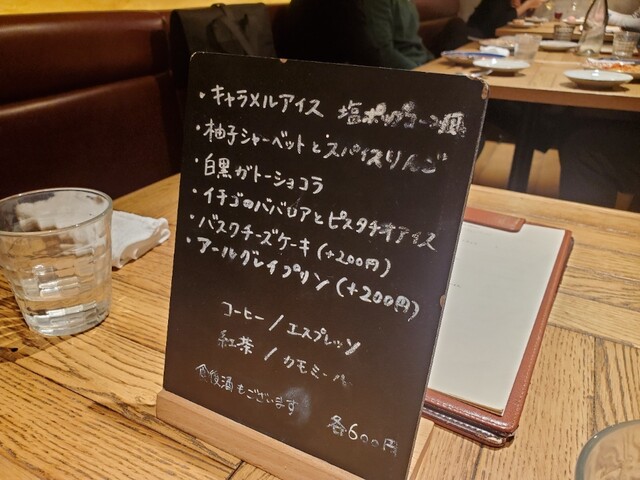 ・キャラメルアイス 塩ポップコーン風
・柚子シャーベットとスパイスりんご
・白黒ガトーショコラ
・イチゴのババロアとピスタチオアイス
・バスクチーズケーキ(+200円)
・アールグレイプリン(+200円)
コーヒー / エスプレッソ
紅茶 / カモミール
食後酒もございます
各600円